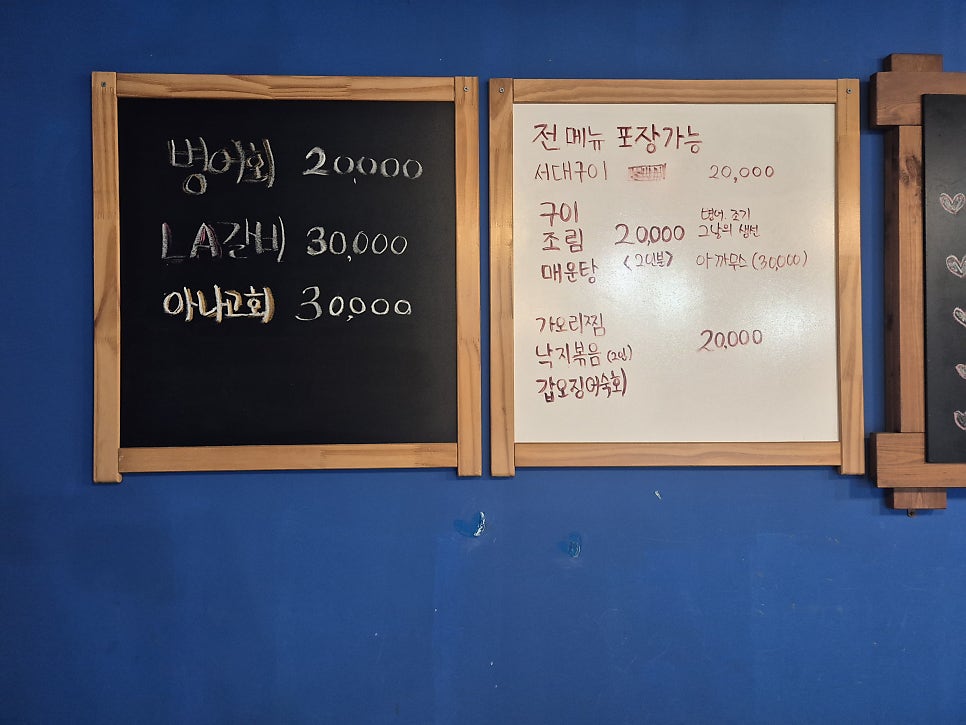 병어회 20,000
LA갈비 30,000
아나고회 30,000
전 메뉴 포장가능
서대구이 20,000
구이
조림 20,000 병어. 조기
매운탕 <2인분> 그날의 생선
아까무스 (30,000)
가오리찜
낙지볶음 (2인) 20,000
갑오징어숙회